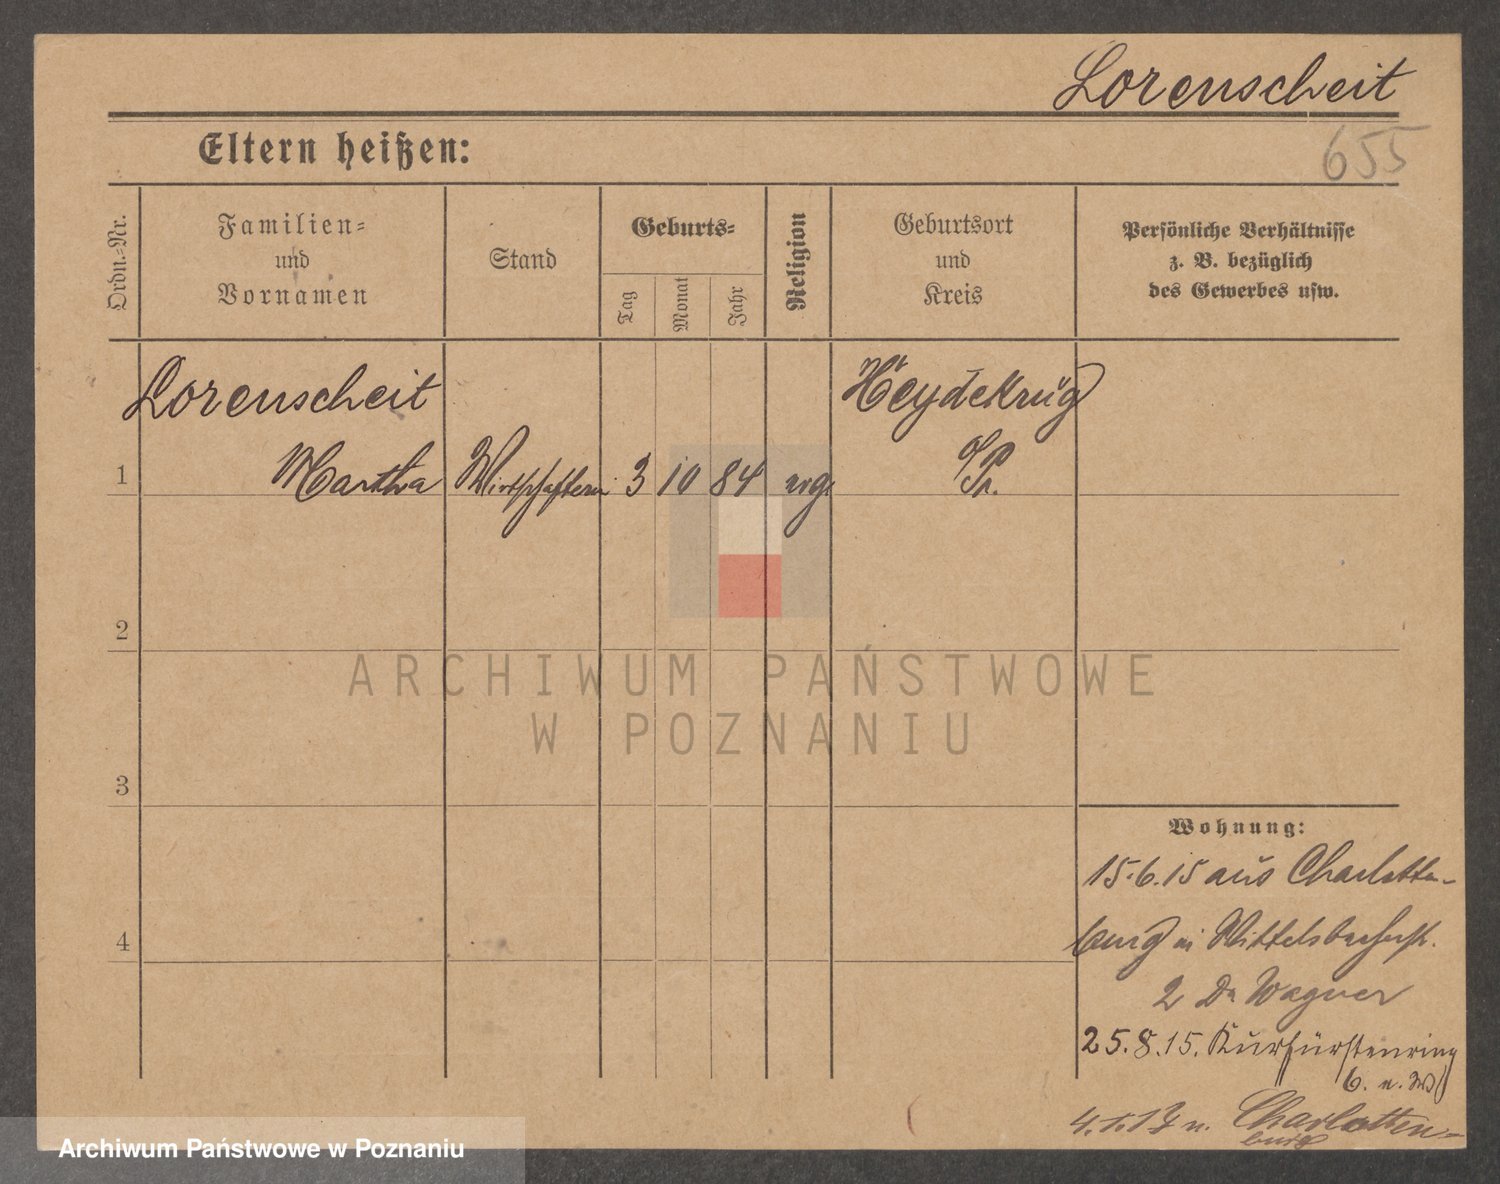 Lorenscheit
655
Eltern heißen:
Ordn.-Nr.
Familien-
und
Vornamen
Stand
Geburts-
Tag
Monat
Jahr
Religion
Geburtsort
und
Kreis
Persönliche Verhältnisse
z. B. bezüglich
des Gewerbes usw.
Lorenscheit
Heydekrug
1 Martha Wirtschafterin 3 10 84 evg.
2
3
4
ARCHIWUM PAŃSTWOWE
W POZNANIU
Wohnung:
15.6.15 aus Charlotten-
burg Wittelsbacherstr.
2 Dr Wagner
25.8.15. Kurfürstenring
6.
n. Charlotten-
burg
Archiwum Państwowe w Poznaniu